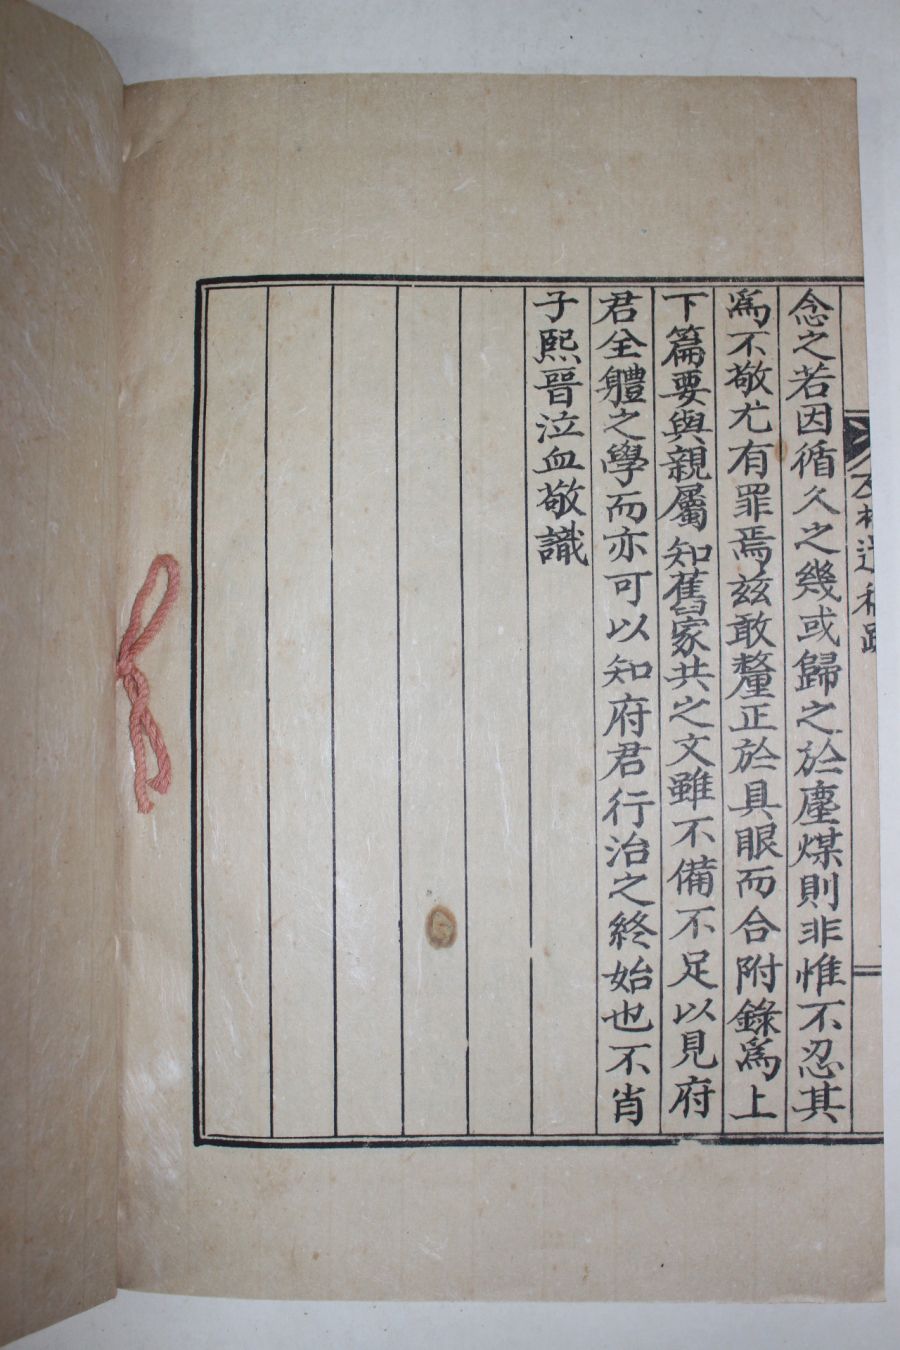 念之若因循久之幾或歸之於塵煤則非惟不忍其
爲不敬尤有罪焉玆敢釐正於具眼而合附錄爲上
下篇要與親屬知舊家共之文雖不備不足以見府
君全體之學而亦可以知府君行治之終始也不肖
子熙晉泣血敬識